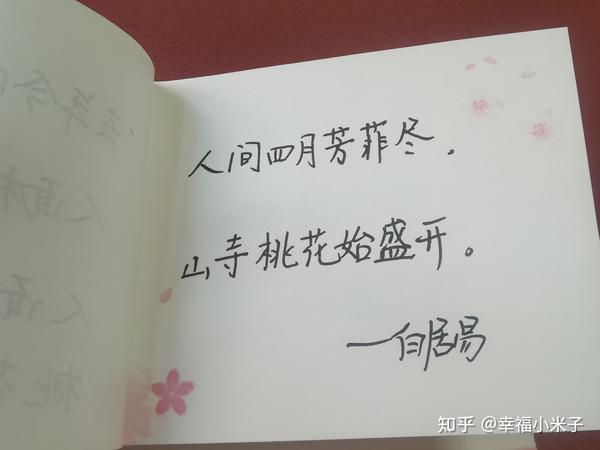 人间四月芳菲尽，
山寺桃花始盛开。
—白居易
知乎 @幸福小米子